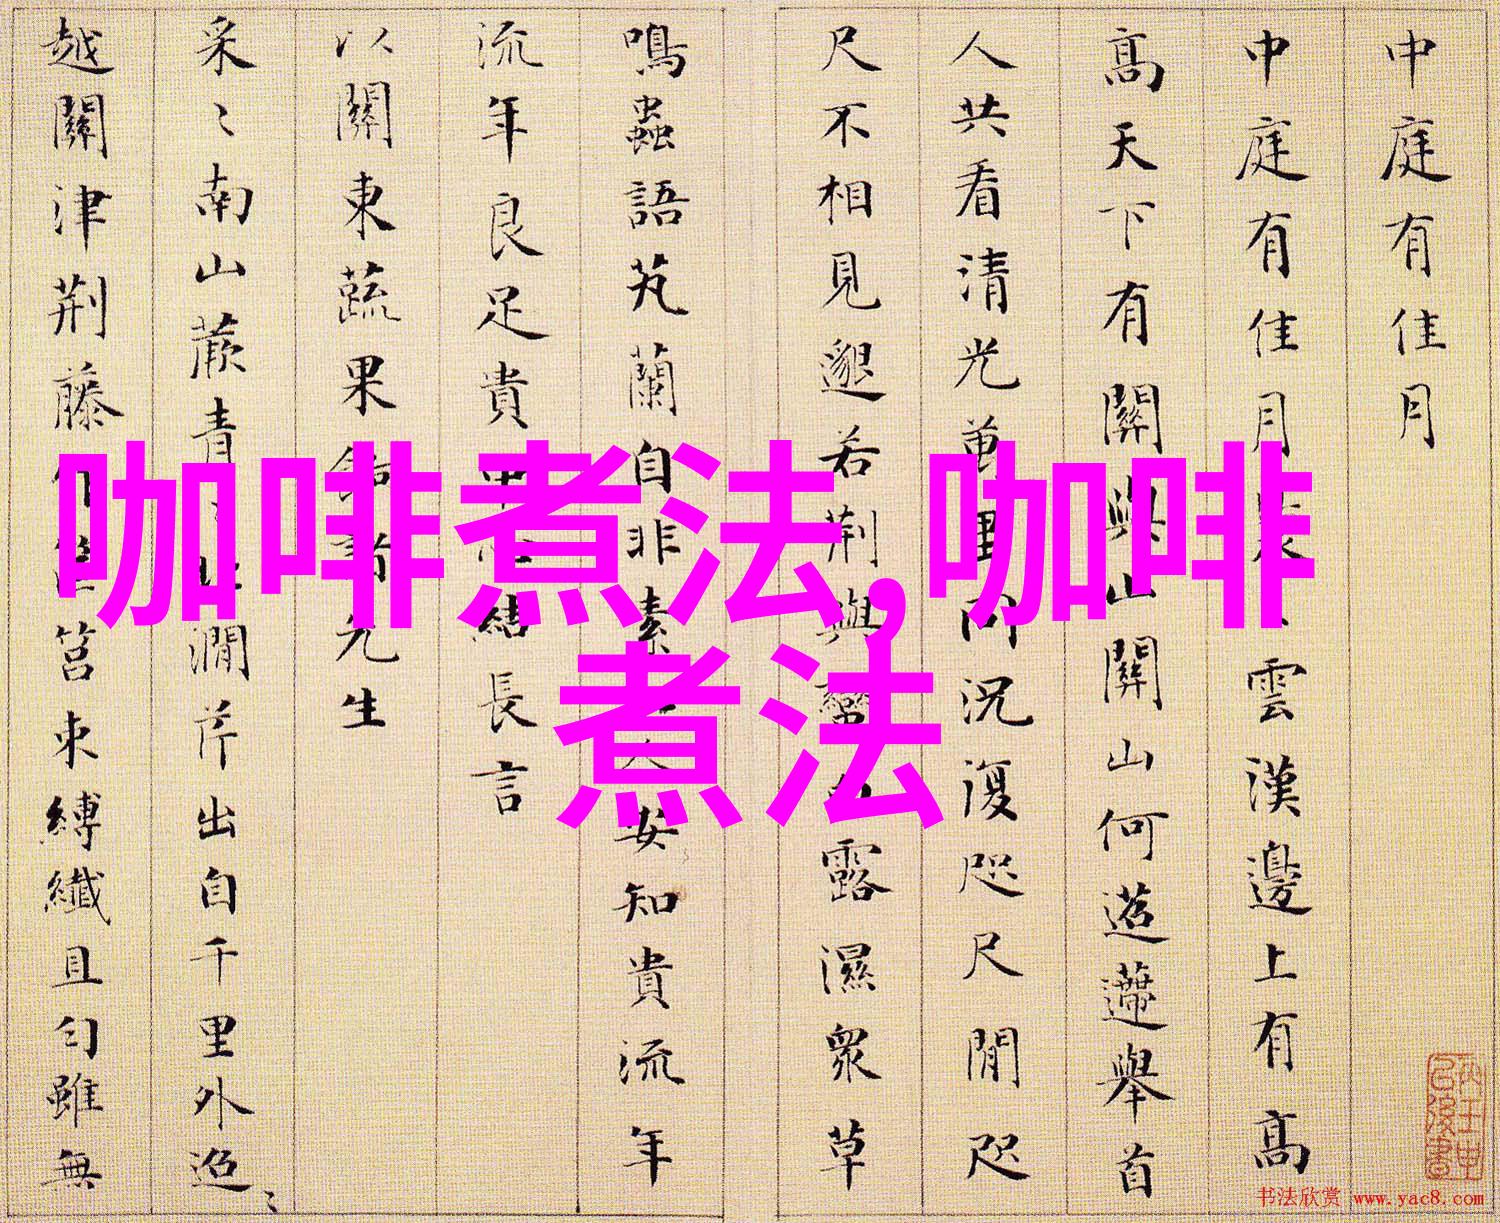 咖啡煮法,咖啡
煮法
中庭有佳月
中庭有佳月
雲漢邊上有高
高天下有關
山關山何迢遰舉首
人共看清光萬里同況復咫尺間咫
尺不相見邈若荆與
露濕衆草
鳴蟲語芄蘭自非素
安知貴流年
流年良足貴
結長言
以關東蔬果
先生
采〻南山蕨青
澗芹出自千里外迢〻
越關津荆藤
筥束縳纖且勻雖無
书法欣赏 www.yac8.com